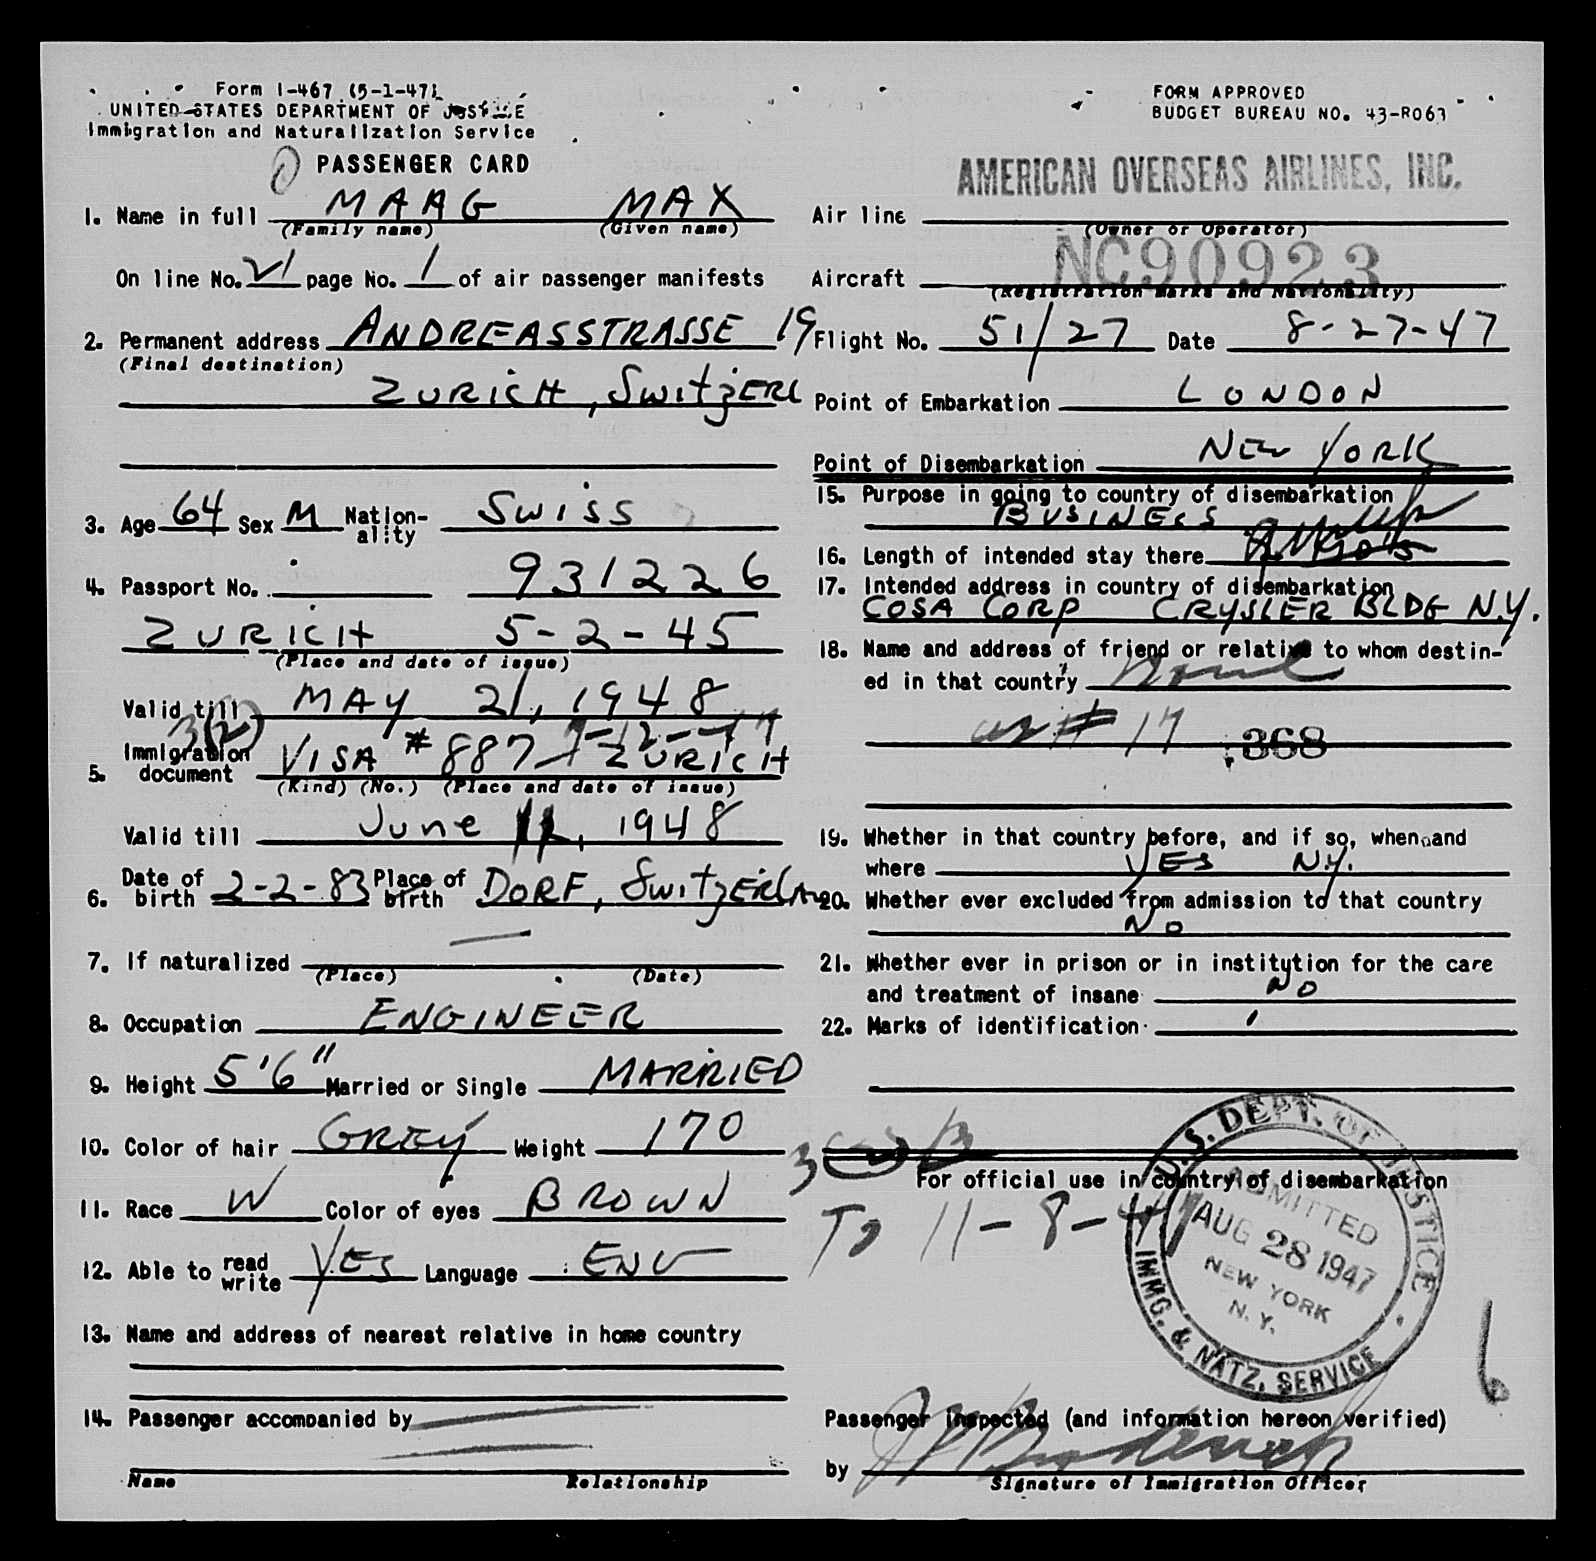 Form I-467 (5-1-47)
UNITED STATES DEPARTMENT OF JUSTICE
Immigration and Naturalization Service
PASSENGER CARD
1. Name in full MAAG MAX
(Family name) (Given name)
On line No. VI page No. 1 of air passenger manifests
2. Permanent address ANDREASSTRASSE 19
(Final destination)
ZURICH, SwitzERL
3. Age 64 Sex M Nation-ality Swiss
4. Passport No. 931226
ZURICH 5-2-45
(Place and date of issue)
Valid till MAY 21, 1948
5. Immigration document VISA # 887 ZURICH
(Kind) (No.) (Place and date of issue)
Valid till June 11, 1948
6. Date of birth 2-2-83 Place of birth DORF, SwitzERLAN
7. If naturalized —
(Place) (Date)
8. Occupation ENGINEER
9. Height 5'6" Married or Single MARRIED
10. Color of hair GREY Weight 170
11. Race W Color of eyes BROWN
12. Able to read write YES Language ENG
13. Name and address of nearest relative in home country
14. Passenger accompanied by
Name Relationship
FORM APPROVED
BUDGET BUREAU NO. 43-R063
AMERICAN OVERSEAS AIRLINES, INC.
Air line
(Owner or Operator)
Aircraft NC90923
(Registration marks and Nationality)
Flight No. 51/27 Date 8-27-47
Point of Embarkation LONDON
Point of Disembarkation NEW YORK
15. Purpose in going to country of disembarkation
BUSINESS
16. Length of intended stay there
17. Intended address in country of disembarkation
COSA CORP CRYSLER BLDG N.Y.
18. Name and address of friend or relative to whom destin-
ed in that country
as # 17 368
19. Whether in that country before, and if so, when and
where YES N.Y.
20. Whether ever excluded from admission to that country
NO
21. Whether ever in prison or in institution for the care
and treatment of insane NO
22. Marks of identification
For official use in country of disembarkation
To 11-8-47
U.S. DEPT. OF JUSTICE
ADMITTED
AUG 28 1947
NEW YORK
N.Y.
IMMG. & NATZ. SERVICE
6
Passenger inspected (and information hereon verified)
by
Signature of Immigration Officer